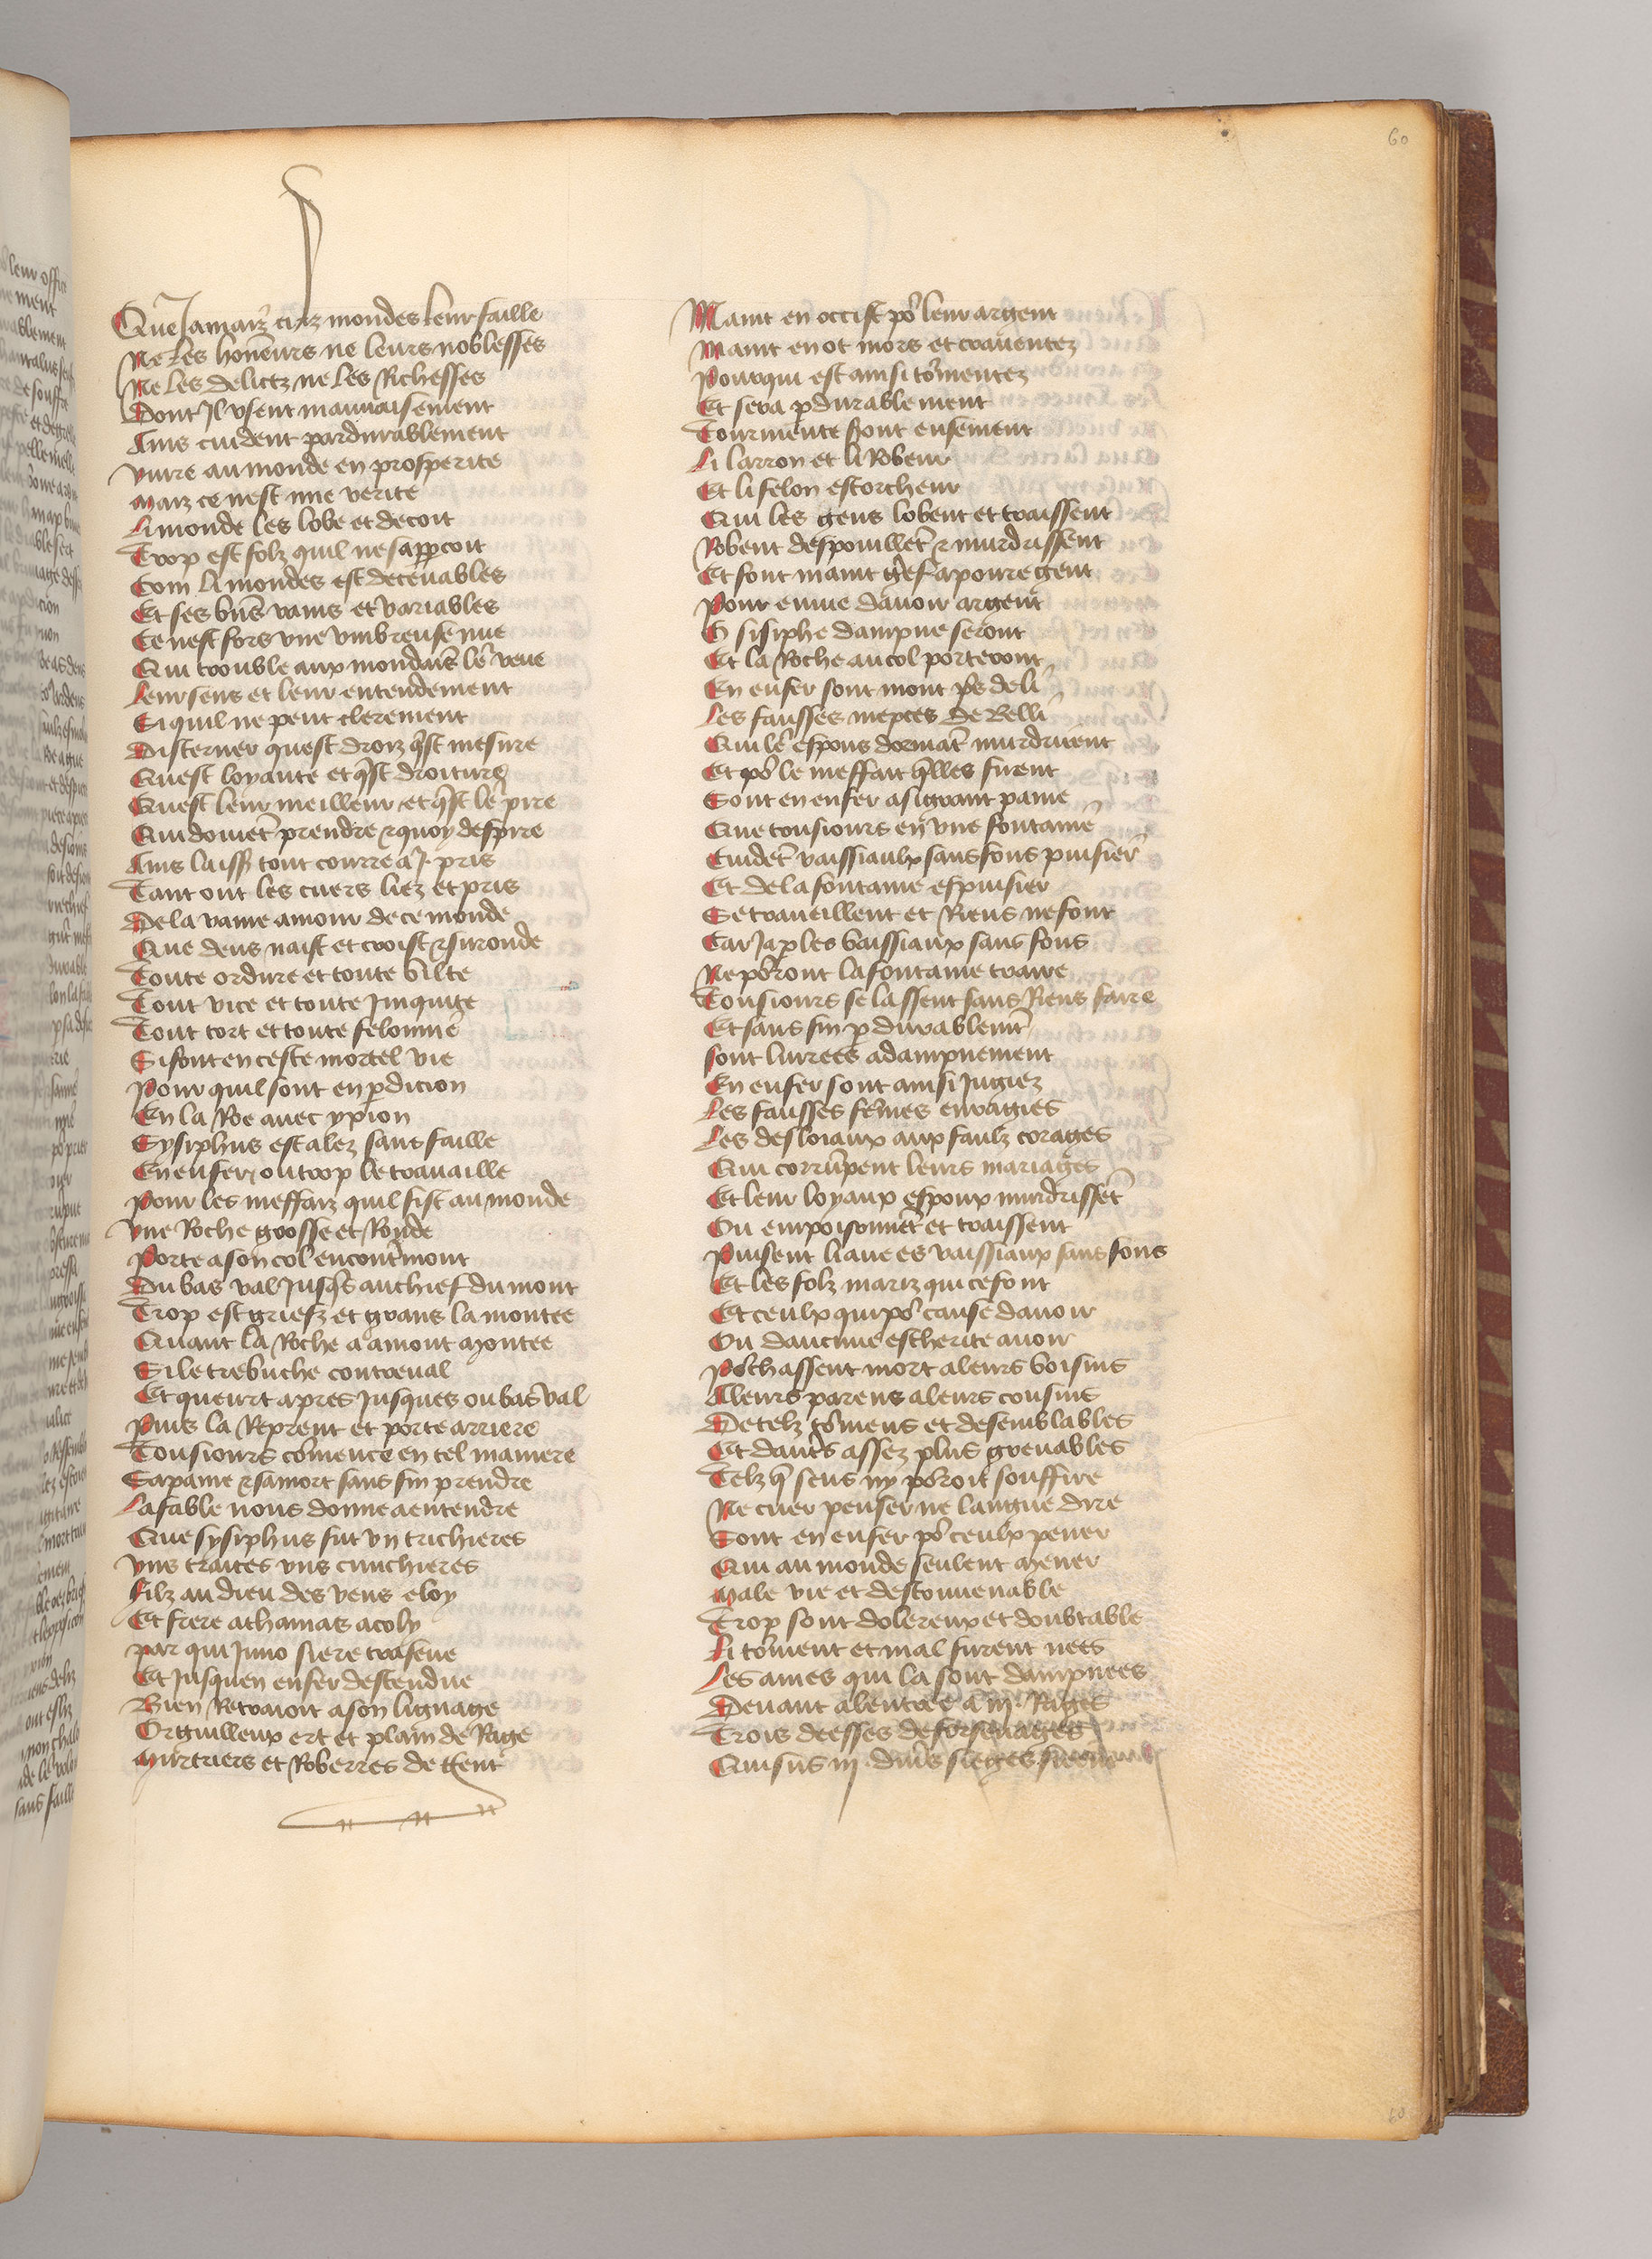 60
Que Jamaiz cilz mondes leur faille
Ne les honeurs ne leurs noblesses
Ne les delictz ne les Richesses
Dont Il vsent mauuaisement
Ains cuident pardurablement
viure au monde en prosperite
maiz ce nest mie verite
Li monde les lobe et decoit
Trop est folz quil ne sappcoit
Com li mondes est deceuables
Et ses bn̄s vains et variables
Ce nest fors vne vmbreuse nue
Qui trouble aux mondaīs lē veue
Leur sens et leur entendement
Si quil ne peut clerement
Discerner quest droiz q̄st mesure
Quest loyaute et q̄st droiture
Quest leur meilleur et q̄st le pire
Qui doiuēt prendre ⁊ quoy despire
Ains laissēt tout courre a .J. pris
Tant ont les cuers liez et pris
De la vaine amour de ce monde
Que dens naist et croist ⁊ suronde
Toute ordure et toute vilte
Tout vice et toute Iniquite
Tout tort et toute felonnie
Si font en ceste mortel vie
Pour quil sont en pdicion
En la Roe auec yxion
Sysiphus est alez sans faille
En enfer ou trop se trauaille
Pour les meffaiz quil fist au monde
vne Roche grosse et Ronde
Porte a son col encontremont
Du bas val Jusqs au chief du mont
Trop est griefz et grans la montee
Quant la Roche a amont montee
Si le trebuche contreual
Et queurt apres Jusques ou bas val
Puis la Reprent et porte arriere
Tousiours cōmence en tel maniere
Sa paine ⁊ sa mort sans fin prendre
La fable nous donne a entendre
Que sysiphus fut vn trichieres
vns traites vns cunchieres
Filz au dieu des vens eloy
Et frere athamas a coly
par qui Juno fiere trafeue
Et Jusquen enfer descendue
Bien Retraioit a son lignage
Orguilleux ert et plain de Rage
Murtriers et Roberres de gent
Maint en occist po᷑ leur argent
Maint en ot mors et crauentez
Pourqui est ainsi to᷑mentez
Et sera pdurablement
Tourmente sont ensement
Li larron et li Robeur
Et li felon escorcheur
Qui les gens lobent et traissent
Robent despouillēt ⁊ murdrissent
Et font maint grief a poure gent
Pour enuie dauoir argent
O sisiphe dampne seront
Et la Roche au col porteront
En enfer sont mont ps de li
Les fausses niepces de Belli
Qui lē espous dormāt murdrirent
Et po᷑ le meffait q̄lles firent
Sont en enfer a si grant paine
Que tousiours en vne fontaine
Cuidēt vaissiaulx sans fons puisier
Et de la fontaine espuisier
Se traueillent et Riens ne font
Car Ja p les vaissiaux sans fons
Ne po᷑ront la fontaine traire
Tousiours se lassent sans Riens faire
Et sans fin p durablemt̄
sont liurees a dampnement
En enfer sont ainsi Jugiez
Les fausses fēmes enragies
Les desloiaux aux faulz corages
Qui corrūpent leurs mariages
Et leur loyaux espoux murdrissēt
Ou empoisonnēt et traissent
Puisent liaue es vaissiaux sans fons
Et les folz mariz qui ce font
Et ceulx qui po᷑ cause dauoir
Ou daucune escherite auoir
Po᷑chassent mort a leurs voisins
A leurs parens a leurs cousins
De telz to᷑mens et de semblables
Et dautrs assez plus greuables
Telz q̄ sens ny po᷑roit souffire
Ne cuer penser ne langue dire
Sont en enfer po᷑ ceulx pener
Qui au monde seulent mener
Male vie et desconuenable
Trop sont dolereux et doubtable
Li to᷑ment et mal furent nees
Les ames qui la sont dampnees
Deuant alentree a .iij. Rages
Trois deesses de forsenages
Qui sus iij. diūs sieges
60